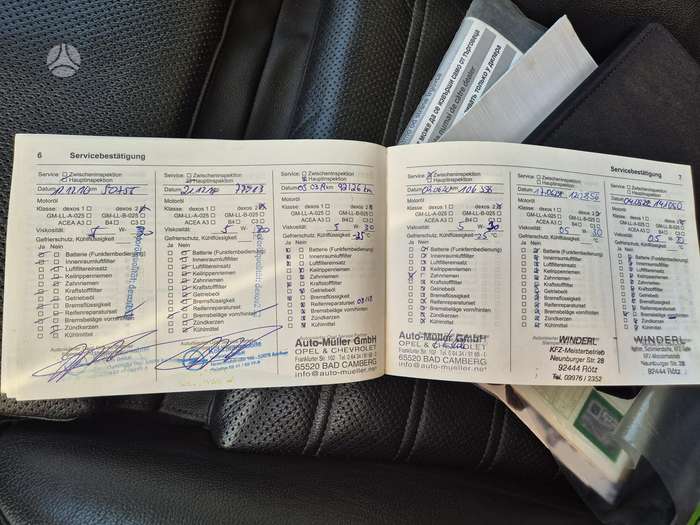 може да се извърши само от търговеца
numai de către dealer
6 Servicebestätigung
Service: Zwischeninspektion
Hauptinspektion
Datum 12.12.16 km 50756
Motoröl
Klasse: dexos 1 dexos 2
GM-LL-A-025 GM-LL-B-025
ACEA A3 B4 C3
Viskosität: 5 W- 30
Gefrierschutz, Kühlflüssigkeit: °C
Ja Nein
Batterie (Funkfernbedienung)
Innenraumluftfilter
Luftfiltereinsatz
Keilrippenriemen
Zahnriemen
Kraftstofffilter
Getriebeöl
Bremsflüssigkeit
Reifenreparaturset
Bremsbeläge vorn/hinten
Zündkerzen
Kühlmittel
Service: Zwischeninspektion
Hauptinspektion
Datum km
Motoröl
Klasse: dexos 1 dexos 2
GM-LL-A-025 GM-LL-B-025
ACEA A3 B4 C3
Viskosität: 5 W- 30
Gefrierschutz, Kühlflüssigkeit: °C
Ja Nein
Batterie (Funkfernbedienung)
Innenraumluftfilter
Luftfiltereinsatz
Keilrippenriemen
Zahnriemen
Kraftstofffilter
Getriebeöl
Bremsflüssigkeit
Reifenreparaturset
Bremsbeläge vorn/hinten
Zündkerzen
Kühlmittel
Service: Zwischeninspektion
Hauptinspektion
Datum km 92126 km
Motoröl
Klasse: dexos 1 dexos 2
GM-LL-A-025 GM-LL-B-025
ACEA A3 B4 C3
Viskosität: 5 W- 30
Gefrierschutz, Kühlflüssigkeit: -25 °C
Ja Nein
Batterie (Funkfernbedienung)
Innenraumluftfilter
Luftfiltereinsatz
Keilrippenriemen
Zahnriemen
Kraftstofffilter
Getriebeöl
Bremsflüssigkeit
Reifenreparaturset
Bremsbeläge vorn/hinten
Zündkerzen
Kühlmittel
Auto-Müller GmbH
OPEL & CHEVROLET
65520 BAD CAMBERG
info@auto-mueller.net
Servicebestätigung 7
Service: Zwischeninspektion
Hauptinspektion
Datum km 106
Motoröl
Klasse: dexos 1 dexos 2
GM-LL-A-025 GM-LL-B-025
ACEA A3 B4 C3
Viskosität: 5 W- 30
Gefrierschutz, Kühlflüssigkeit: -25 °C
Ja Nein
Batterie (Funkfernbedienung)
Innenraumluftfilter
Luftfiltereinsatz
Keilrippenriemen
Zahnriemen
Kraftstofffilter
Getriebeöl
Bremsflüssigkeit
Reifenreparaturset
Bremsbeläge vorn/hinten
Zündkerzen
Kühlmittel
Auto-Müller GmbH
OPEL & CHEVROLET
65520 BAD CAMBERG
info@auto-mueller.net
Service: Zwischeninspektion
Hauptinspektion
Datum km
Motoröl
Klasse: dexos 1 dexos 2
GM-LL-A-025 GM-LL-B-025
ACEA A3 B4 C3
Viskosität: 05 W- 30
Gefrierschutz, Kühlflüssigkeit: °C
Ja Nein
Batterie (Funkfernbedienung)
Innenraumluftfilter
Luftfiltereinsatz
Keilrippenriemen
Zahnriemen
Kraftstofffilter
Getriebeöl
Bremsflüssigkeit
Reifenreparaturset
Bremsbeläge vorn/hinten
Zündkerzen
Kühlmittel
WINDERL
KFZ-Meisterbetrieb
Neunburger Str. 28
92444 Rötz
Tel. 09976 / 2352
Service: Zwischeninspektion
Hauptinspektion
Datum 04.08.22 km 141050
Motoröl
Klasse: dexos 1 dexos 2
GM-LL-A-025 GM-LL-B-025
ACEA A3 B4 C3
Viskosität: 05 W-
Gefrierschutz, Kühlflüssigkeit:
Ja Nein
Batterie (Funkfernbedienung)
Innenraumluftfilter
Luftfiltereinsatz
Keilrippenriemen
Zahnriemen
Kraftstofffilter
Getriebeöl
Bremsflüssigkeit
Reifenreparaturset
Bremsbeläge vorn/hinten
Zündkerzen
Kühlmittel
WINDERL
Neunburger Str. 28
92444 Rötz